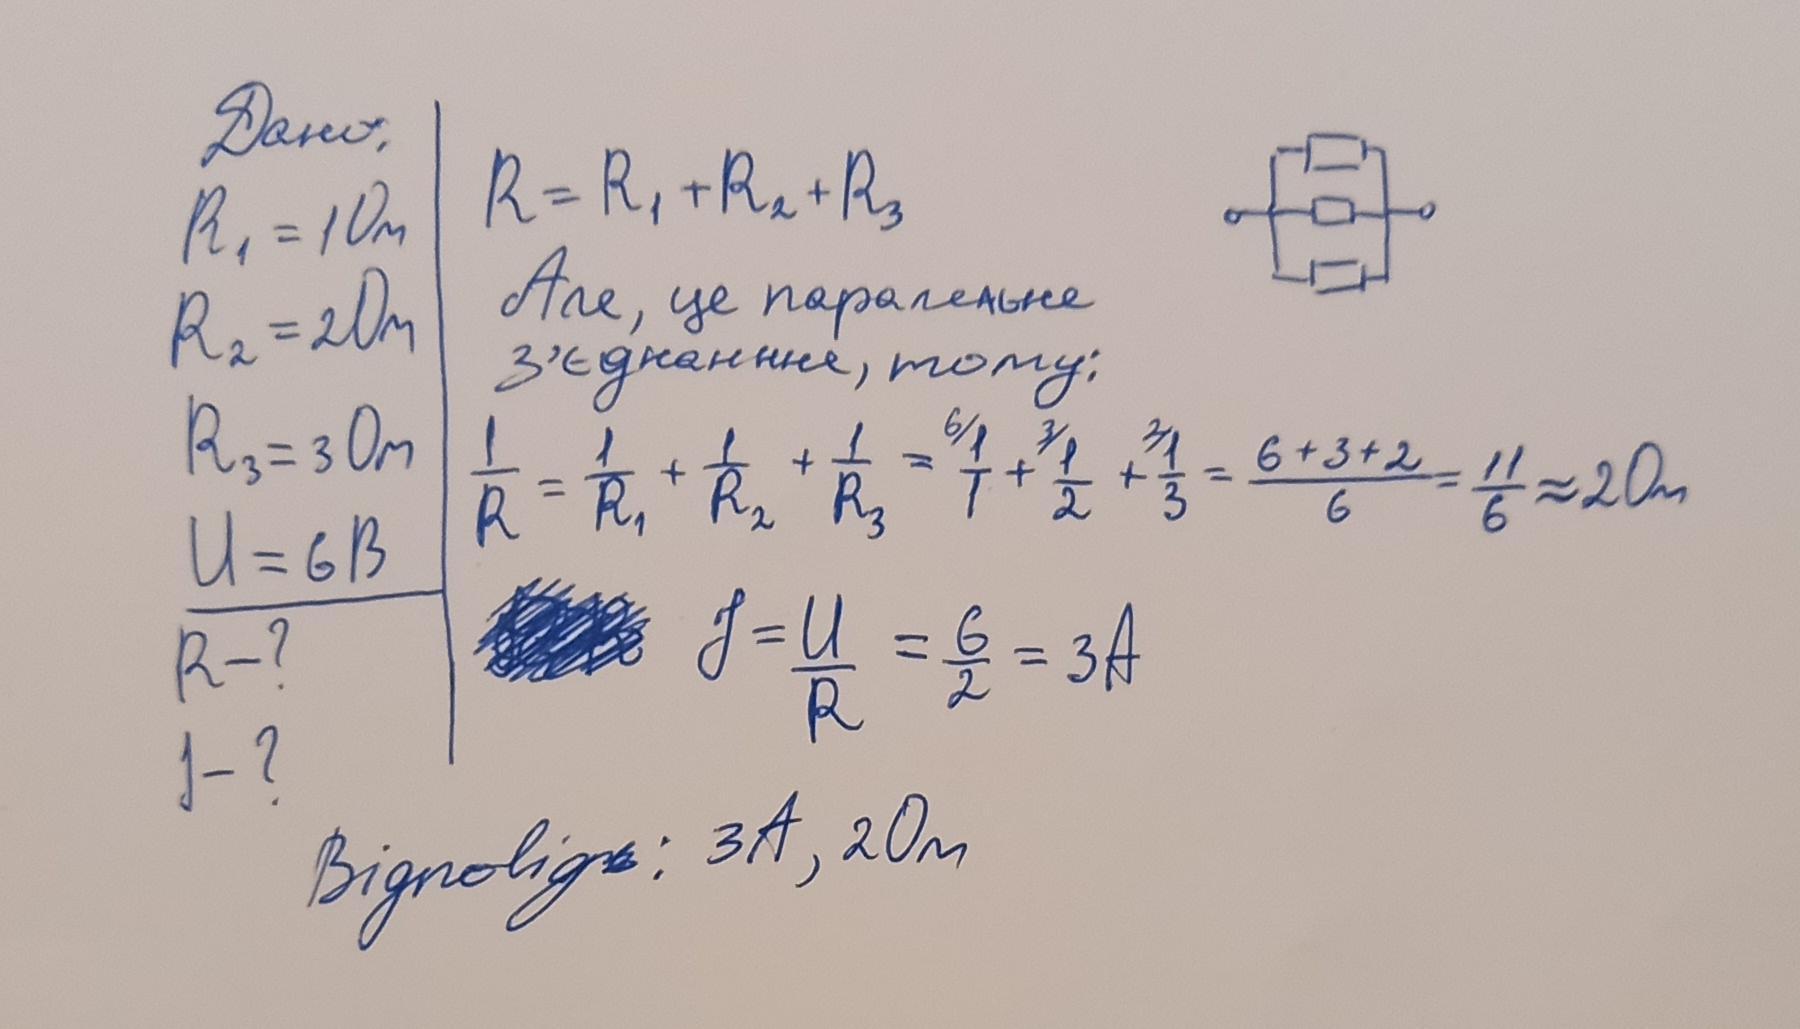 Дано:
R₁ = 1 Ом
R₂ = 2 Ом
R₃ = 3 Ом
U = 6 В
R – ?
J – ?
R = R₁ + R₂ + R₃
Але, це паралельне
з'єднанння, тому:
1/R = 1/R₁ + 1/R₂ + 1/R₃ = ⁶⁄1/1 + ³⁄1/2 + ²⁄1/3 = (6+3+2)/6 = 11/6 ≈ 2 Ом
J = U/R = 6/2 = 3 А
Відповідь: 3 А, 2 Ом